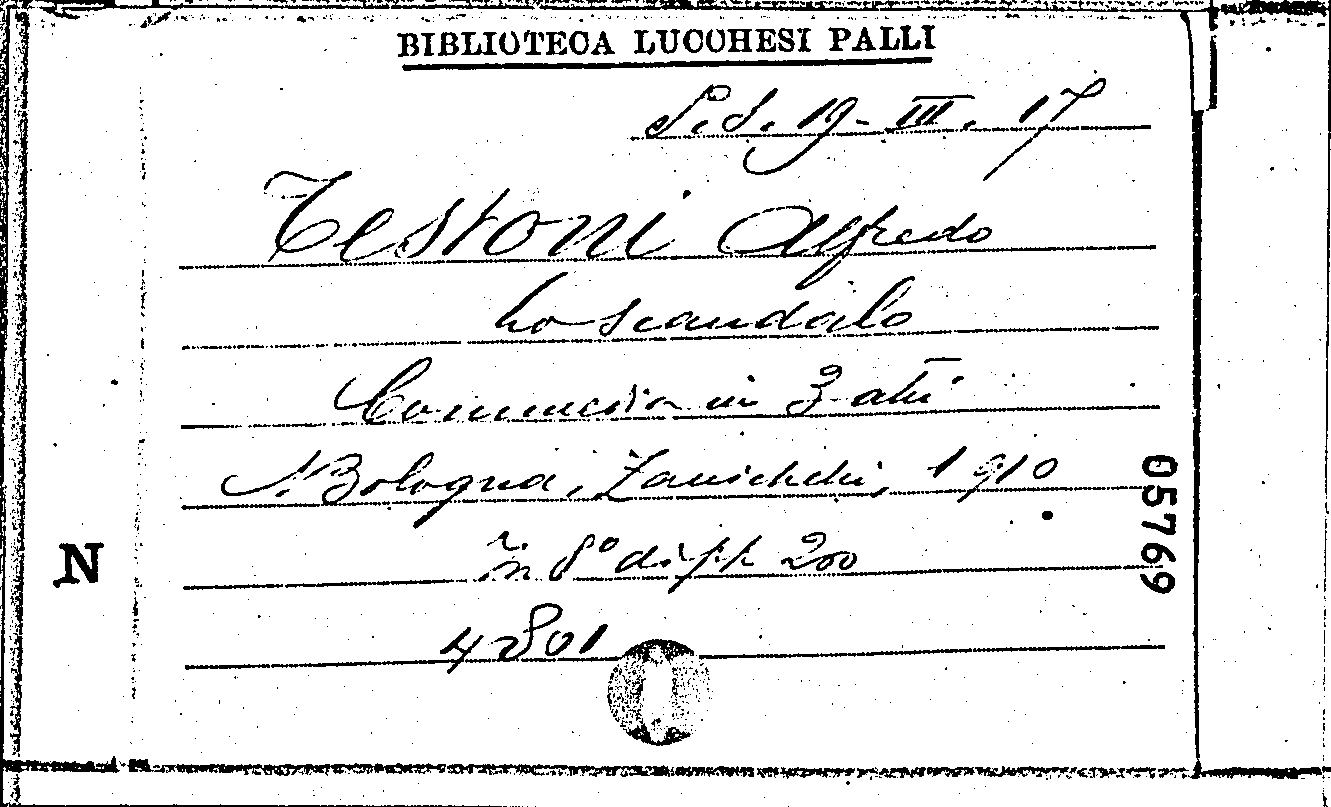 BIBLIOTECA LUCCHESI PALLI
S.d. 19-III. 17
Testoni Alfredo
Lo scandalo
Commedia in 3 atti
N. Bologna, Zanichelli, 1910
In 8° di pp 200
4801
N
05769